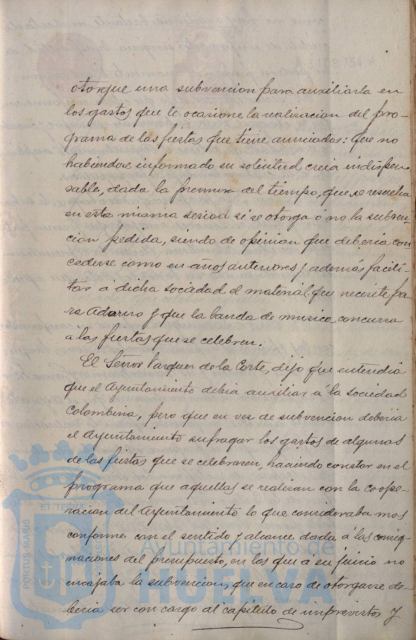 otorgue una subvencion para auxiliarla en
los gastos que le ocasione la realizacion del pro-
grama de las fiestas que tiene anunciadas: que no
habiendose informado su solicitud creia indispen-
sable, dada la premura del tiempo, que se resuelva
en esta misma sesion si se otorga ó no la subven-
cion pedida, siendo de opinion que deberia con-
cederse como en años anteriores y además facili-
tar á dicha sociedad el material que necesite pa-
ra adorno y que la banda de musica concurra
a las fiestas que se celebren.
El Señor Vazquez de la Corte, dijo que entendia
que el Ayuntamiento debia auxiliar á la sociedad
Colombina, pero que en vez de subvencion deberia
el Ayuntamiento sufragar los gastos de algunas
de las fiestas que se celebraren, haciendo constar en el
programa que aquellas se realizan con la coope-
racion del Ayuntamiento lo que consideraba mas
conforme con el sentido y alcance dado á las consig-
naciones del presupuesto, en los que a su juicio no
encajaba la subvencion, que en caso de otorgarse de-
beria ser con cargo al capitulo de imprevistos y
Ayuntamiento de
HUELVA